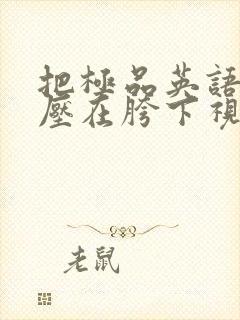 把極品英語
壓在胯下視
老鼠